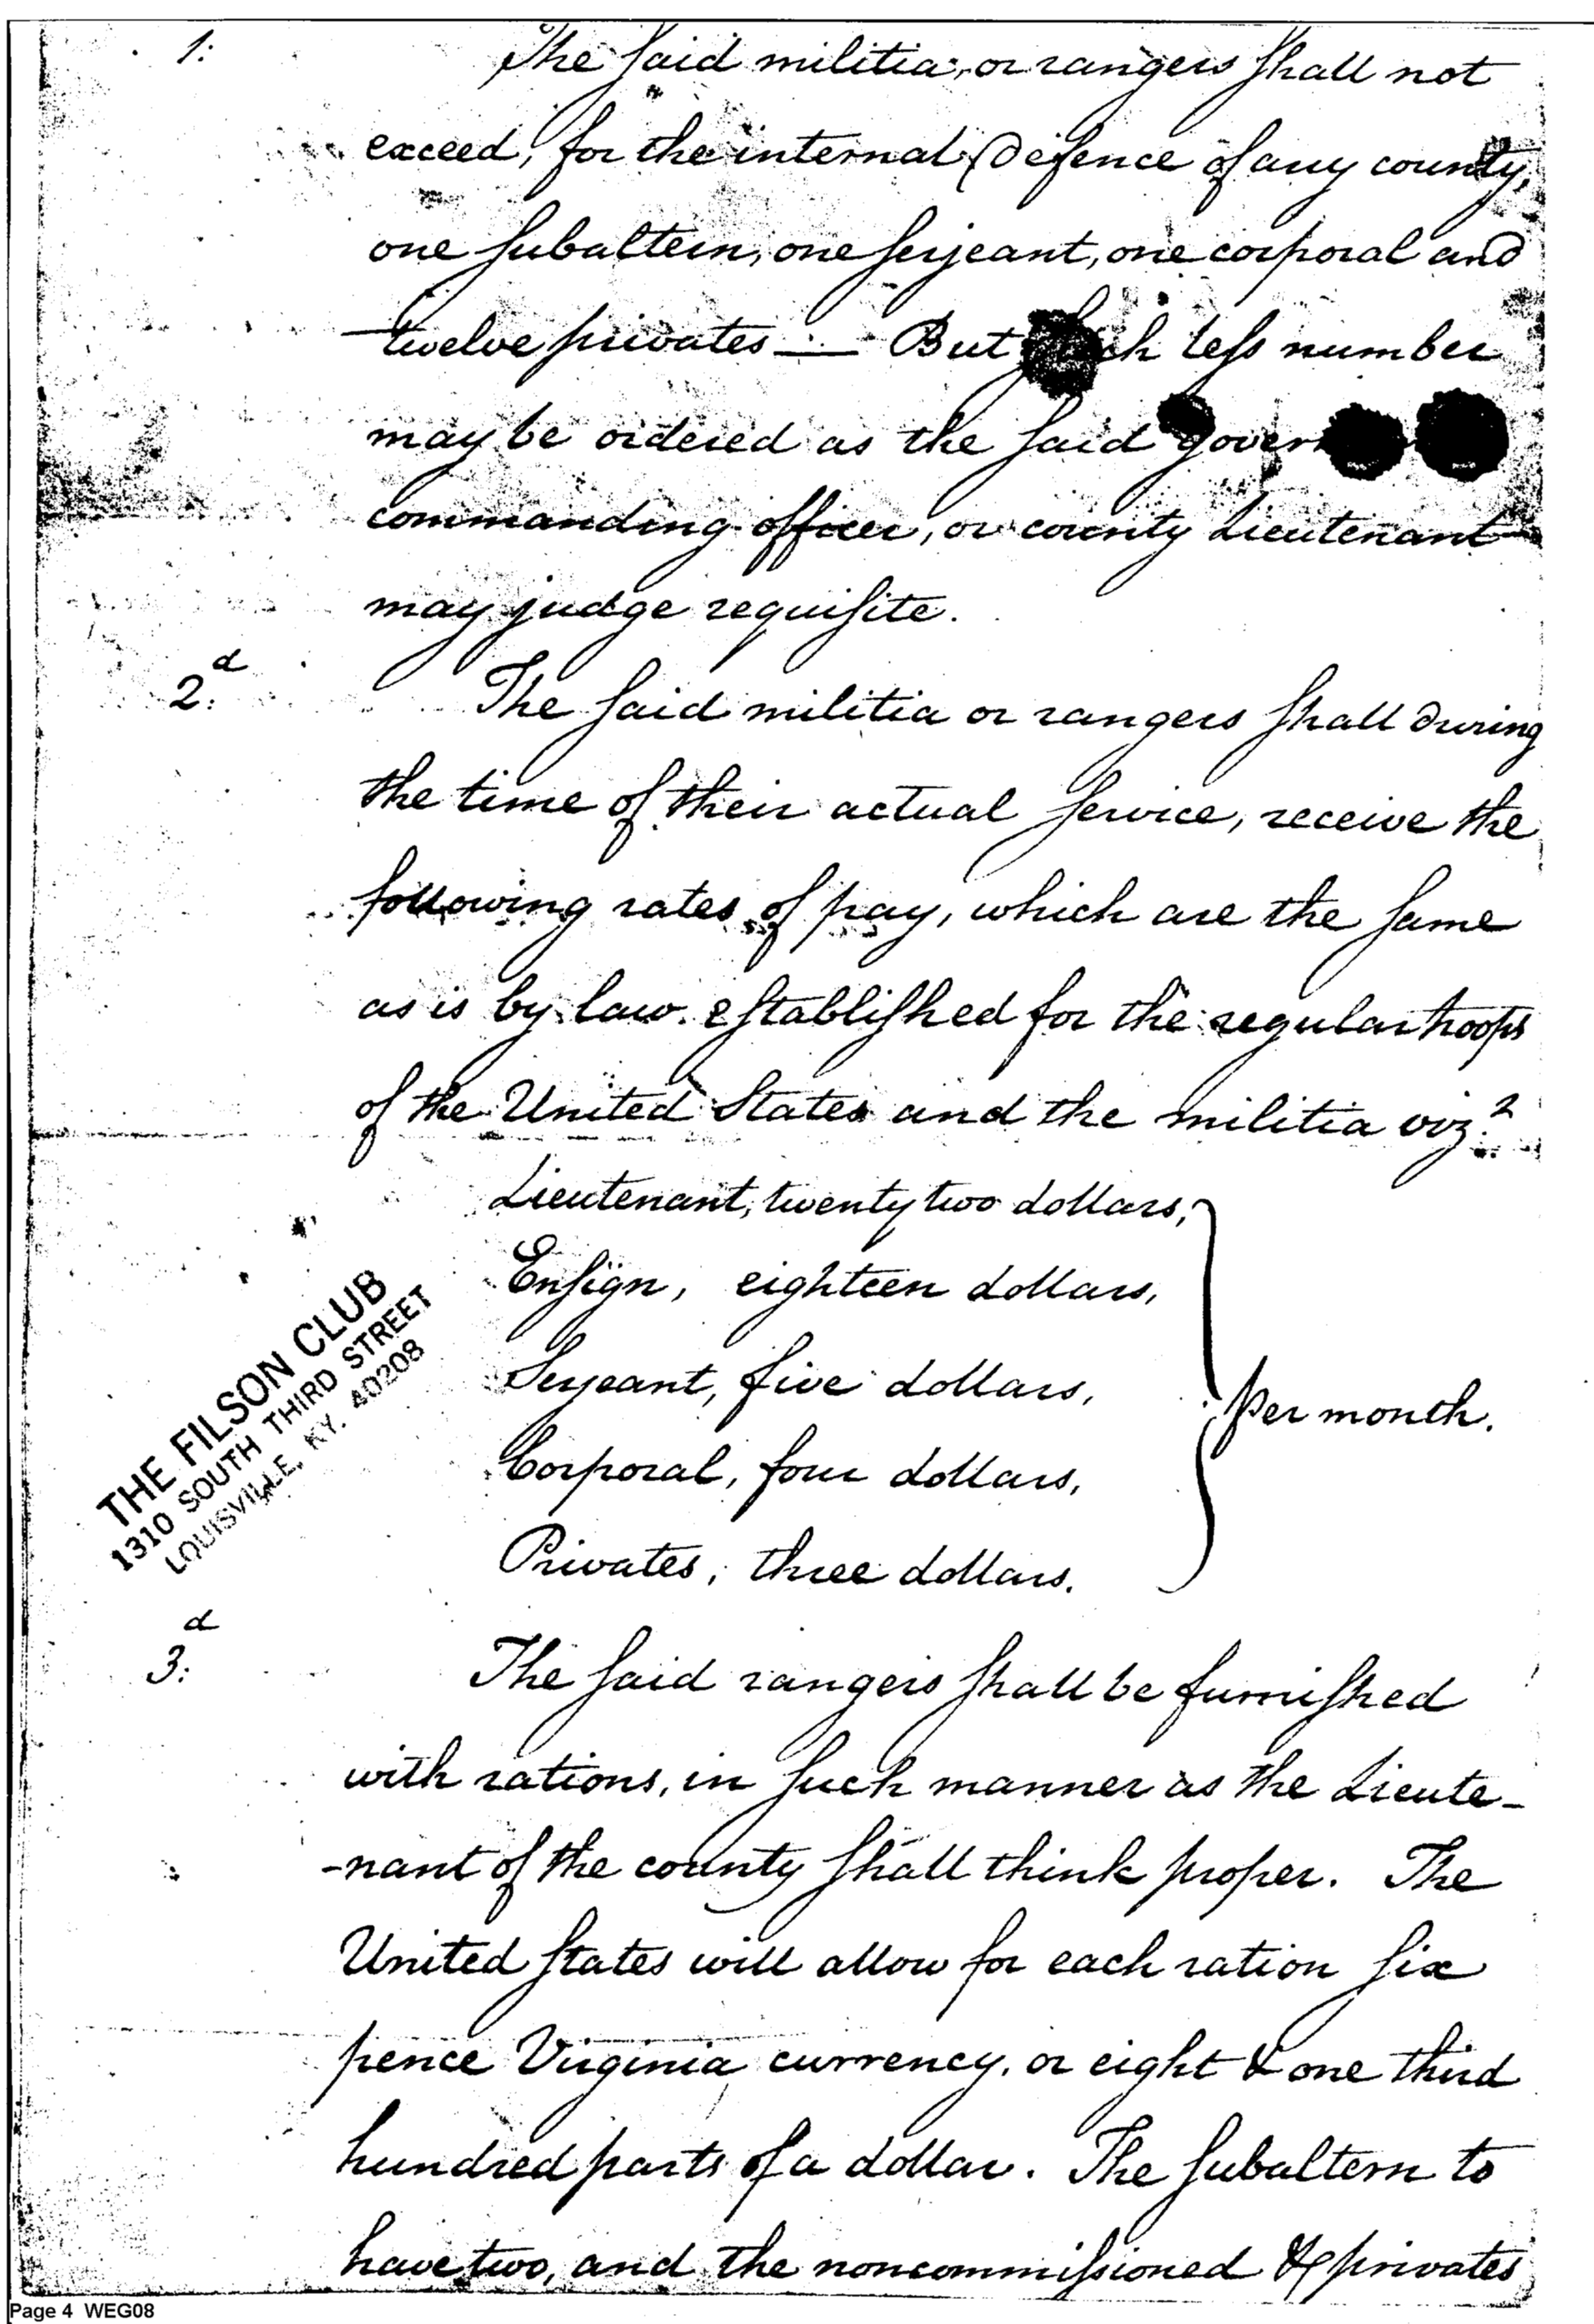 1: The said militia, or rangers shall not
exceed, for the internal Defence of any county,
one subaltern, one serjeant, one corporal and
twelve privates — But such less number
may be ordered as the said
commanding officer, or county Lieutenant
may judge requisite.
2.d The said militia or rangers shall during
the time of their actual service, receive the
following rates of pay, which are the same
as is by law established for the regular troops
of the United States and the militia viz.t
Lieutenant, twenty two dollars,
Ensign, eighteen dollars,
Serjeant, five dollars,
per month.
Corporal, four dollars,
Privates, three dollars.
THE FILSON CLUB
1310 SOUTH THIRD STREET
LOUISVILLE, KY. 40208
3.d The said rangers shall be furnished
with rations, in such manner as the Lieute-
-nant of the county shall think proper. The
United States will allow for each ration six
pence Virginia currency, or eight & one third
hundred parts of a dollar. The subaltern to
have two, and the noncommissioned & privates
Page 4 WEG08